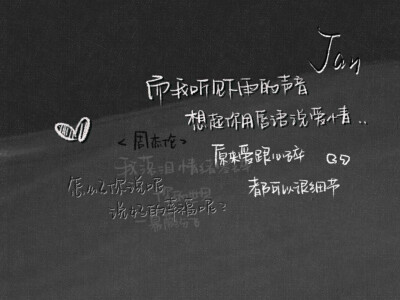 Jan
而我听见下雨的声音
想起你用唇语说爱情..
<周杰伦>
原来爱跟心碎
我落泪情绪零碎
都可以很细节
怎么了你说呢
说好的幸福呢?